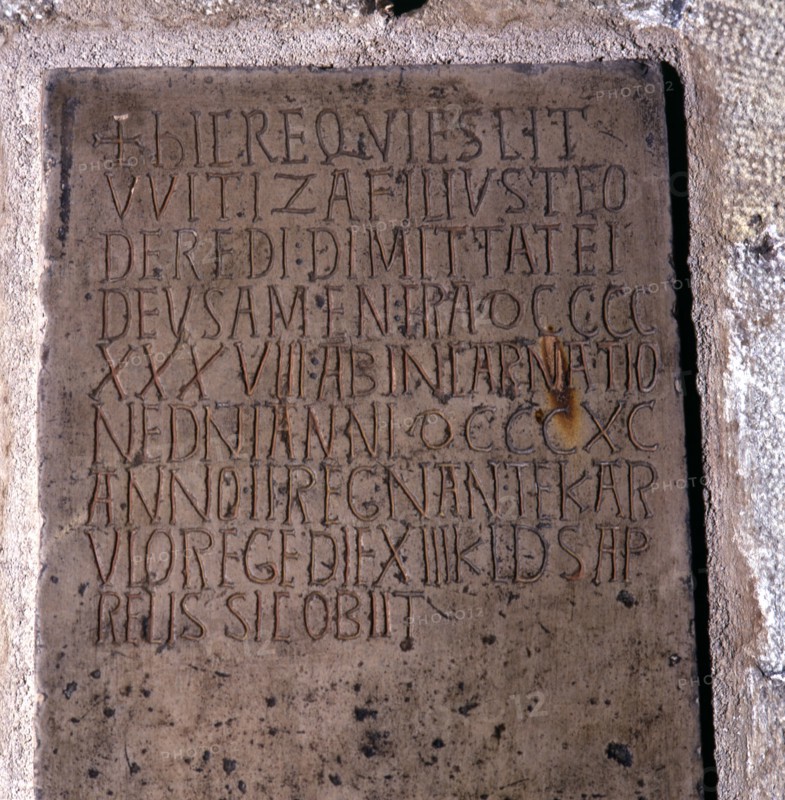 + hIC REQVIESCIT
VVITIZA FILIVS TEO
DEREDI DIMITTAT EI
DEVS AMEN ERA DCCCC
XXXVIII AB INCARNATIO
NE DNI ANNI DCCCXC
ANNO II REGNANTE KAR
VLO REGE DIE XIIII KLDS AP
RELIS SIC OBIIT